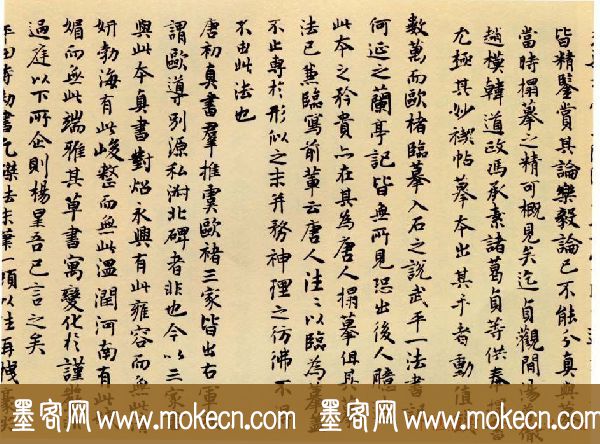 皆精鑒賞其論樂毅論已不能分真與
當時搨摹之精可概見矣迄貞觀間湯徹
趙模韓道政馮承素諸葛貞等供奉搨書
尤極其妙禊帖摹本出其手者動值
數萬而歐褚臨摹入石之說武平一法書記
何延之蘭亭記皆無所見恐出後人臆
此本之矜貴亦在其為唐人搨摹但其
法已兼臨寫前輩云唐人往〻以臨為摹
不止專於形似之末并務神理之彷彿
不由此法也
唐初真書羣推虞歐褚三家皆出右軍
謂歐導別源私淑北碑者非也今以三家
與此本真書對炤永興有此雍容而無此
妍勃海有此峻整而無此溫潤河南有此
媚而無此端雅其草書寓變化於謹
過庭以下所企則楊星吾已言之矣
墨客网 www.mokecn.com 墨客网 www.mokecn.com